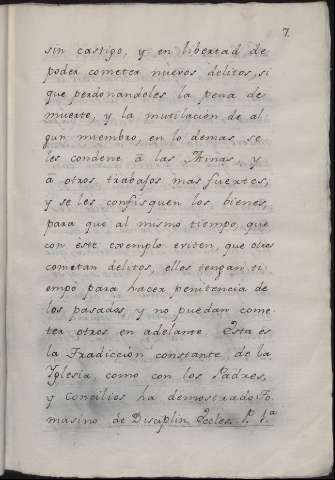 7.
sin castigo, y en libertad de
poder cometer nuevos delitos, si
que perdonandoles la pena de
muerte, y la mutilacion de al
gun miembro, en lo demas se
les condene à las Minas, y
à otros trabajos mas fuertes,
y se les confisquen los bienes,
para que al mismo tiempo, que
con este exemplo eviten, que otros
cometan delitos, ellos tengan ti
empo para hacer penitencia de
los pasados, y no puedan come
ter otros en adelante. Esta es
la Tradiccion constante de la
Yglesia, como con los Padres,
y Concilios ha demostrado To
masino de Disciplin. Eccles. P. 1.ª